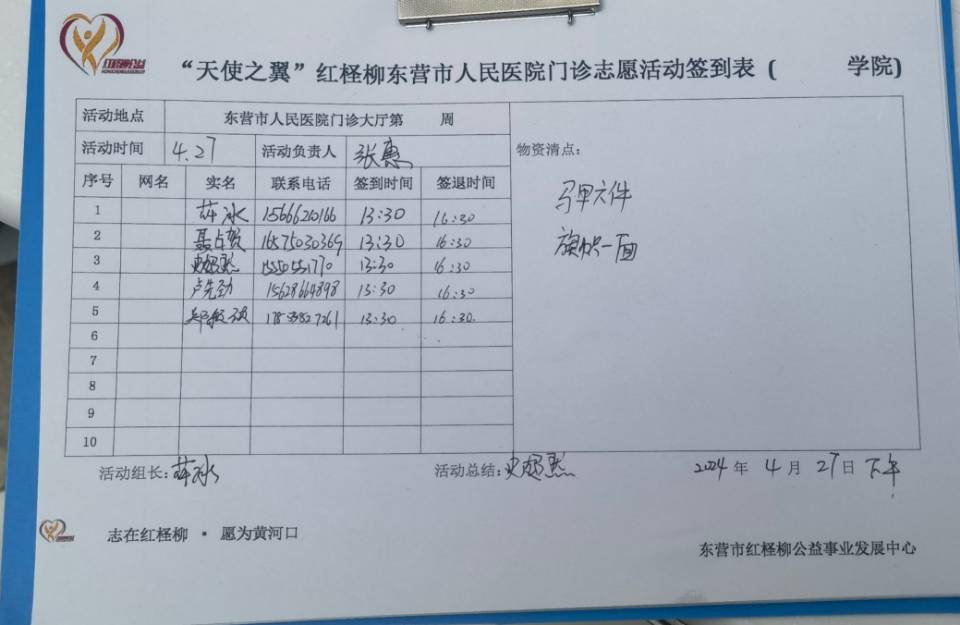 红柽柳公益
“天使之翼”红柽柳东营市人民医院门诊志愿活动签到表 ( 学院)
活动地点 东营市人民医院门诊大厅第 周
活动时间 4.27 活动负责人 张惠
物资清点:
序号 网名 实名 联系电话 签到时间 签退时间
1 薛冰 15666210166 13:30 16:30
2 聂占贺 16575030369 13:30 16:30
3 13:30 16:30
4 卢先劲 15628664898 13:30 16:30
5 13:30 16:30
6
7
8
9
10
马甲六件
旗帜一面
活动组长: 薛冰 活动总结: 2024 年 4 月 27 日 下午
志在红柽柳 · 愿为黄河口
东营市红柽柳公益事业发展中心